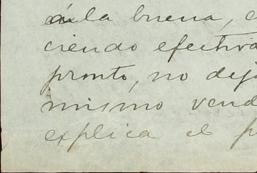 a la buena,
ciendo efectiva
pronto, no dej
mismo vend
explica el p